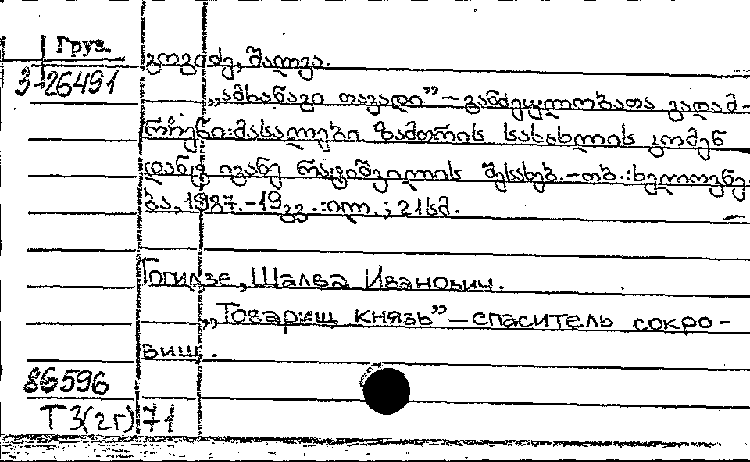 Груз.
3-26491
გოგიძე, შალვა.
„ამხანაგი თავადი” – განძეულობათა გადამ-
რჩენი: მასალები ზამთრის სასახლის კომენ
დანტ ივანე რატიშვილის შესახებ. – თბ.: ხელოვნე-
ბა, 1987. – 19 გვ. : ილ. ; 21 სმ.
Гогидзе, Шалва Иванович.
„Товарищ князь” – спаситель сокро-
вищ.
86596
Т3(2Г)71